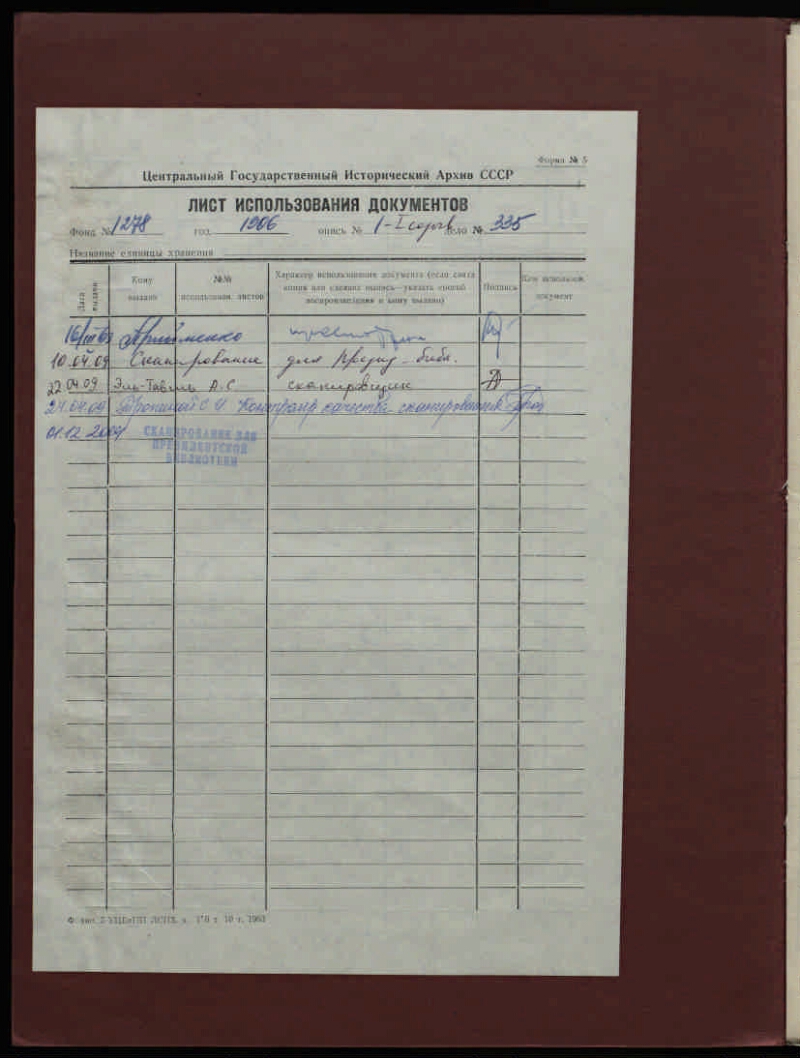 Форма № 5
Центральный Государственный Исторический Архив СССР
ЛИСТ ИСПОЛЬЗОВАНИЯ ДОКУМЕНТОВ
Фонд № 1278 год 1906 опись № 1-I созыв дело № 335
Название единицы хранения
Дата выдачи
Кому выдано
№№ использован. листов
Характер использования документа (если снята копия или сделана выпись—указать способ воспроизведения и кому выдано)
Подпись
Кем использов. документ
16/III 6 просмотрен
10.04.09 Сканирование для Презид. библ.
22.04.09 Эль-Тавиль А.С. сканировщик
24.04.09 С.И. Контролер качества сканирования
01.12.2009 СКАНИРОВАНИЕ ДЛЯ
ПРЕЗИДЕНТСКОЙ
БИБЛИОТЕКИ